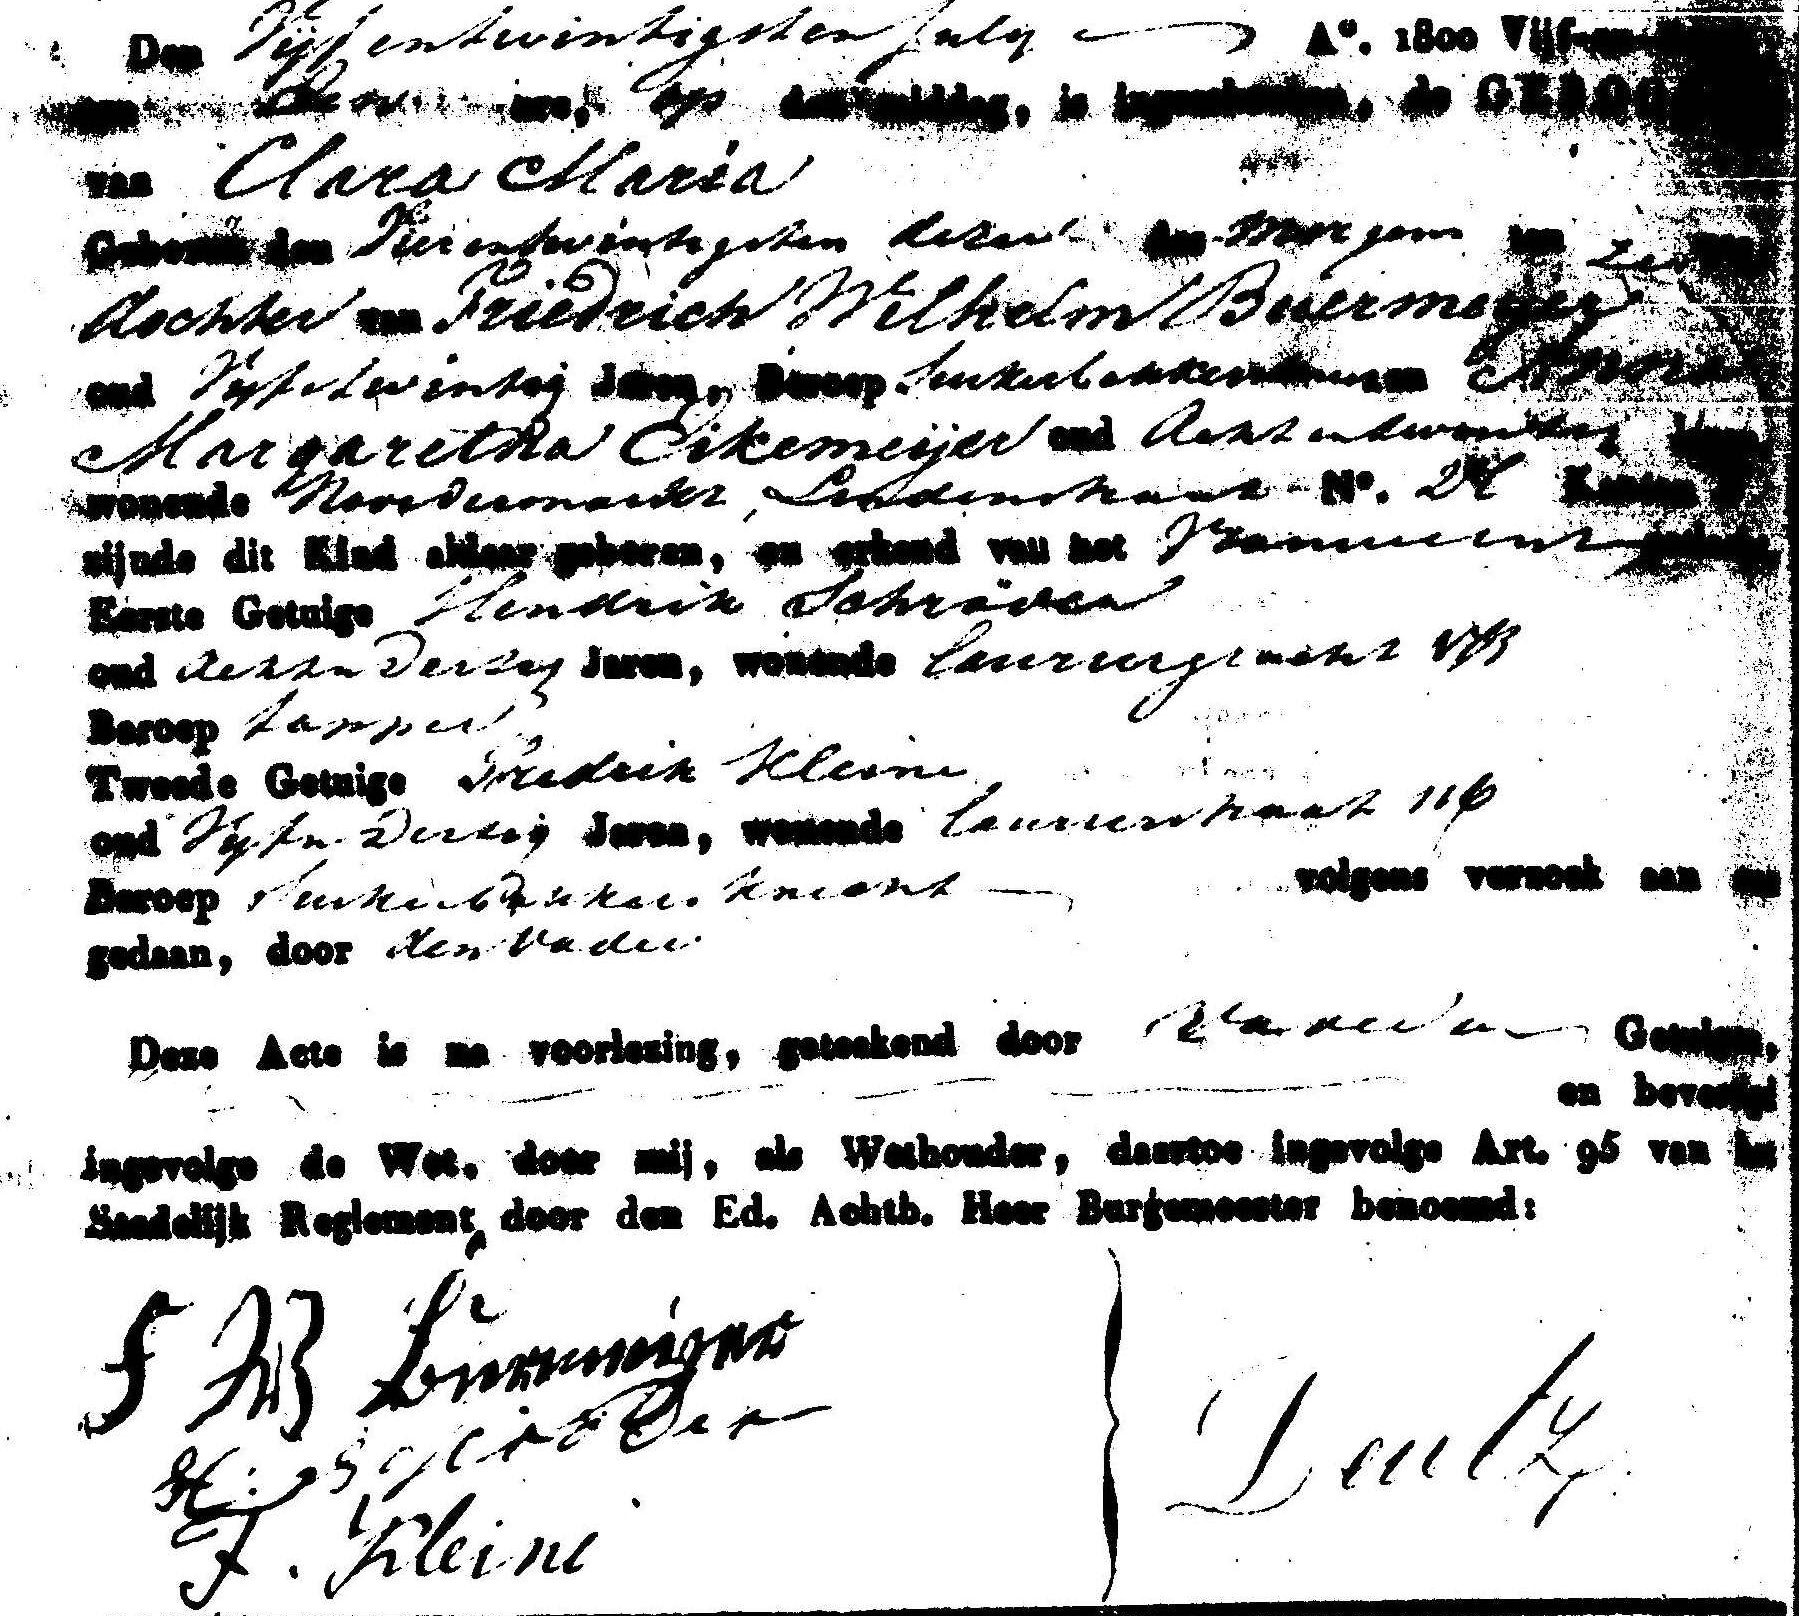 Den Vijfentwintigsten July A°. 1800 Vijf-en-
ure, op den middag, is ingeschreven, de GEBOO
van Clara Maria
Geboren den Vierentwintigsten dezer des Morgens ten
dochter van Friedrich Wilhelm Buermeijer
oud Vijfentwintig Jaren, Beroep Suikerbakkersknecht en Anna
Margaretha Eikemeijer oud Achtentwintig Jaren,
wonende Noordermarkt, Lindenstraat N°. Kanton
zijnde dit Kind aldaar geboren, en erkend van het
Eerste Getuige Hendrik Schröder
oud Achtendertig Jaren, wonende Lauriergracht
Beroep Tapper
Tweede Getuige Fredrik Kleine
oud Vijfendertig Jaren, wonende Laurierstraat 116
Beroep Suikerbakkersknecht volgens verzoek aan ons
gedaan, door den Vader
Deze Acte is na voorlezing, geteekend door Vader en Getuigen,
en bevestigd
ingevolge de Wet, door mij, als Wethouder, daartoe ingevolge Art. 95 van het
Stedelijk Reglement, door den Ed. Achtb. Heer Burgemeester benoemd:
F W Buermeijer
H. Schröder
F. Kleine
Deutz